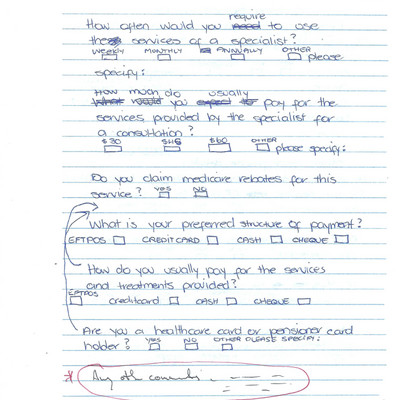 require
How often would you need to use
the services of a specialist?
WEEKLY MONTHLY ANNUALLY OTHER please
specify:
How much do usually
What would you expect to pay for the
services provided by the specialist for
a consultation?
$30 $45 $60 OTHER please specify:
Do you claim medicare rebates for this
service? YES NO
What is your preferred structure of payment?
EFTPOS CREDIT CARD CASH CHEQUE
How do you usually pay for the services
and treatments provided?
EFTPOS creditcard CASH CHEQUE
Are you a healthcare card or pensioner card
holder? YES NO OTHER PLEASE SPECIFY:
* Any oth comments